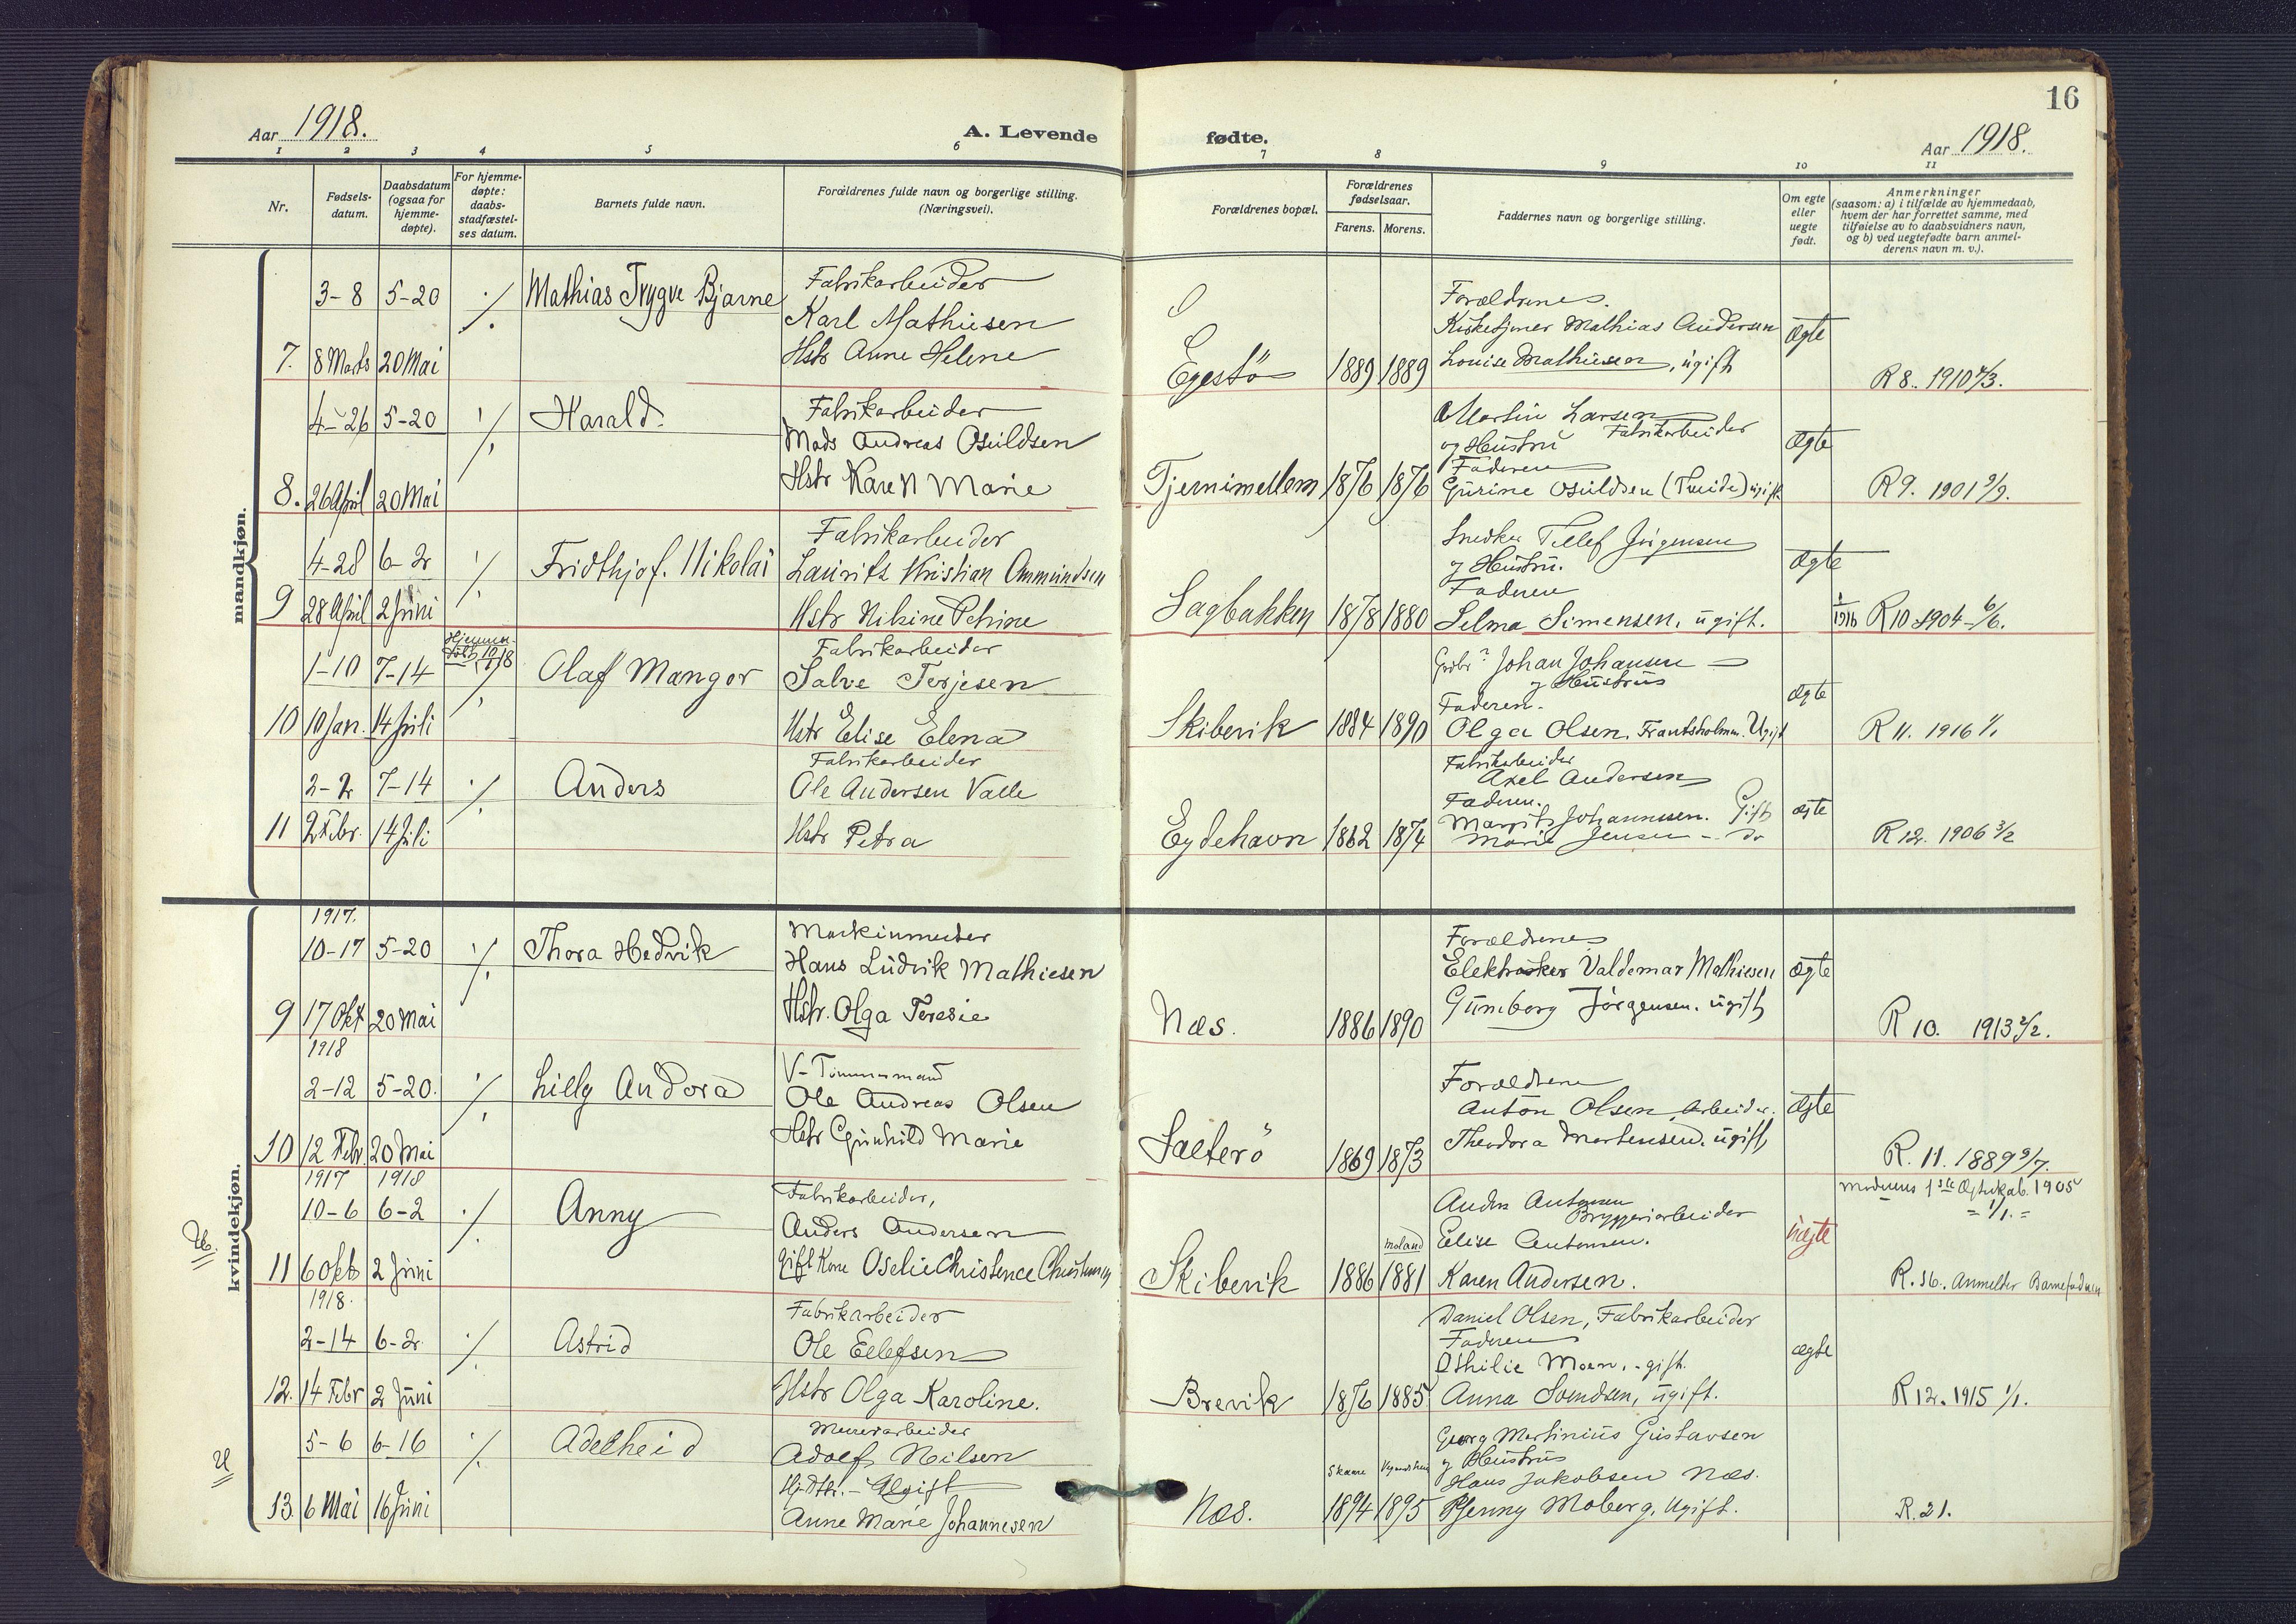 16
Aar 1918.
A. Levende fødte.
Aar 1918.
1 2 3 4 5 6 7 8 9 10 11
Nr.
Fødsels-
datum.
Daabsdatum
(ogsaa for
hjemme-
døpte).
For hjemme-
døpte:
daabs-
stadfæstel-
ses datum.
Barnets fulde navn.
Forældrenes fulde navn og borgerlige stilling.
(Næringsvei).
Forældrenes bopæl.
Forældrenes
fødselsaar.
Farens. Morens.
Faddernes navn og borgerlige stilling.
Om egte
eller
uegte
født.
Anmerkninger
(saasom: a) i tilfælde av hjemmedaab,
hvem der har forrettet samme, med
tilføielse av to daabsvidners navn,
og b) ved uegtefødte barn anmel-
derens navn m. v.).
mandkjøn.
3-8 5-20 Mathias Trygve Bjarne Fabrikarbeider
Karl Mathiesen
Hstr Anne Helene
7. 8 Marts 20 Mai
Egestö 1889 1889
Forældrene.
Kirketjener Mathias Andersen
Louise Mathiesen, ugift
Ægte
R 8. 1910
4-26 5-20 Harald Fabrikarbeider
Mads Andreas Osuldsen
Hstr Karen Marie
8. 26 April 20 Mai
Tjernimellem 1876 1876
Martin Larsen
Fabrikarbeider
og Hustru
Faderen
Gurine Osuldsen ugift
Ægte
R 9. 1901
4-28 6-2 Fridthjof. Nikolai Fabrikarbeider
Laurits Kristian Ommundsen
Hstr Nikine Petrine
9 28 April 2 Juni
Sagbakken 1878 1880
Snedker Tellef Jörgensen
og Hustru.
Faderen
Selma Simensen, ugift.
Ægte
R 10 1904
1-10 7-14 Hjemme-
Olaf Mangor Fabrikarbeider
Salve Terjesen
Hstr Elise Elena
10 10 Jan. 14 Juli
Skibevik 1884 1890
Johan Johansen
og Hustru
Faderen.
Olga Olsen, Frantsholmen. Ugift
Ægte
R 11. 1916
2-2 7-14 Anders Fabrikarbeider
Ole Andersen Valle
Hstr Petra
11 2 Febr. 14 Juli
Eydehavn 1862 1874
Fabrikarbeider
Axel Andersen
Faderen.
Margit Johannssen. Gift
Marie Jensen - do
Ægte
R 12. 1906 3/2
kvindekjøn.
1917.
10-17 5-20 Thora Hedvik Maskinmester
Hans Ludvik Mathiesen
Hstr. Olga Teresie
9 17 Okt 20 Mai
Næs. 1886 1890
Forældrene
Elektrasker Valdemar Mathiesen
Gunborg Jörgensen. ugift
Ægte
R 10. 1913 2/2.
1918
2-12 5-20. Lilly Andora V- Tömmermand
Ole Andreas Olsen
Hstr Gunhild Marie
10 12 Febr. 20 Mai
Sæterö 1869 1873
Forældrene
Anton Olsen Arbeider.
Theodora Mortensen. ugift
Ægte
R. 11. 1889 9/7.
1917 1918
10-6 6-2 Anny Fabrikarbeider,
Anders Andersen
Gift Kone Oselie Christence
11 6 Okt 2 Juni
Skibevik 1886 Moland 1881
Anders Antonsen
Bryggeriarbeider
Elise Antonsen.
Karen Andersen.
uegte
Moderens 1ste Ægteskab. 1905
= 1/1. =
R. 16. Anmelder Barnefaderen
1918.
2-14 6-2. Astrid Fabrikarbeider
Ole Eellefsen
Hstr Olga Karoline.
12. 14 Febr 2 Juni
Brevik 1876 1885
Daniel Olsen, Fabrikarbeider
Faderen
Othilie Moen, gift.
Anna Svendsen, ugift.
ægte
R 12. 1915 1/1.
5-6 6-16 Adelheid
Adolf Nilsen
Ugift
Anne Marie Johannesen
13. 6 Mai 16 Juni
Næs. Skaane 1894 1895
Georg Martinius Gustavsen
og Hustru
Hans Jakobsen Næs.
Pfenny Moberg, Ugift.
R. 21.